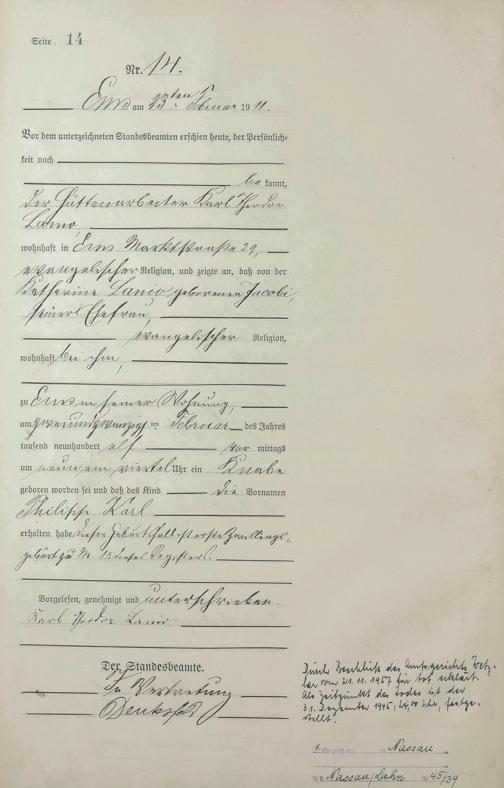 Seite 14
Nr. 14.
Ems am 23ten Februar 1911.
Vor dem unterzeichneten Standesbeamten erschien heute, der Persönlich-
keit nach
be kannt,
der Hüttenarbeiter Karl Theodor
Lanio,
wohnhaft in Ems Marktstraße 29,
evangelischer Religion, und zeigte an, daß von der
Katharine Lanio geborenen Jacobi,
seiner Ehefrau,
evangelischer Religion,
wohnhaft bei ihm,
zu Ems in seiner Wohnung,
am zweiundzwanzigsten Februar des Jahres
tausend neunhundert elf vor mittags
um neun ein viertel Uhr ein Knabe
geboren worden sei und daß das Kind die Vornamen
Philipp Karl
erhalten habe. Dieser Geburtsfall ist erste Zwillings-
geburt zu Nr. dieses Registers.
Vorgelesen, genehmigt und unterschrieben.
Karl Theodor Lanio
Der Standesbeamte.
In Vertretung
Durch Beschluß des Amtsgerichts Wetz-
lar vom 21.11.1957 für tot erklärt.
Als Zeitpunkt des Todes ist der
31. Dezember 1945, 24,00 Uhr, festge-
stellt.
1. in Nassau
Nassau/Lahn Nr 45/39